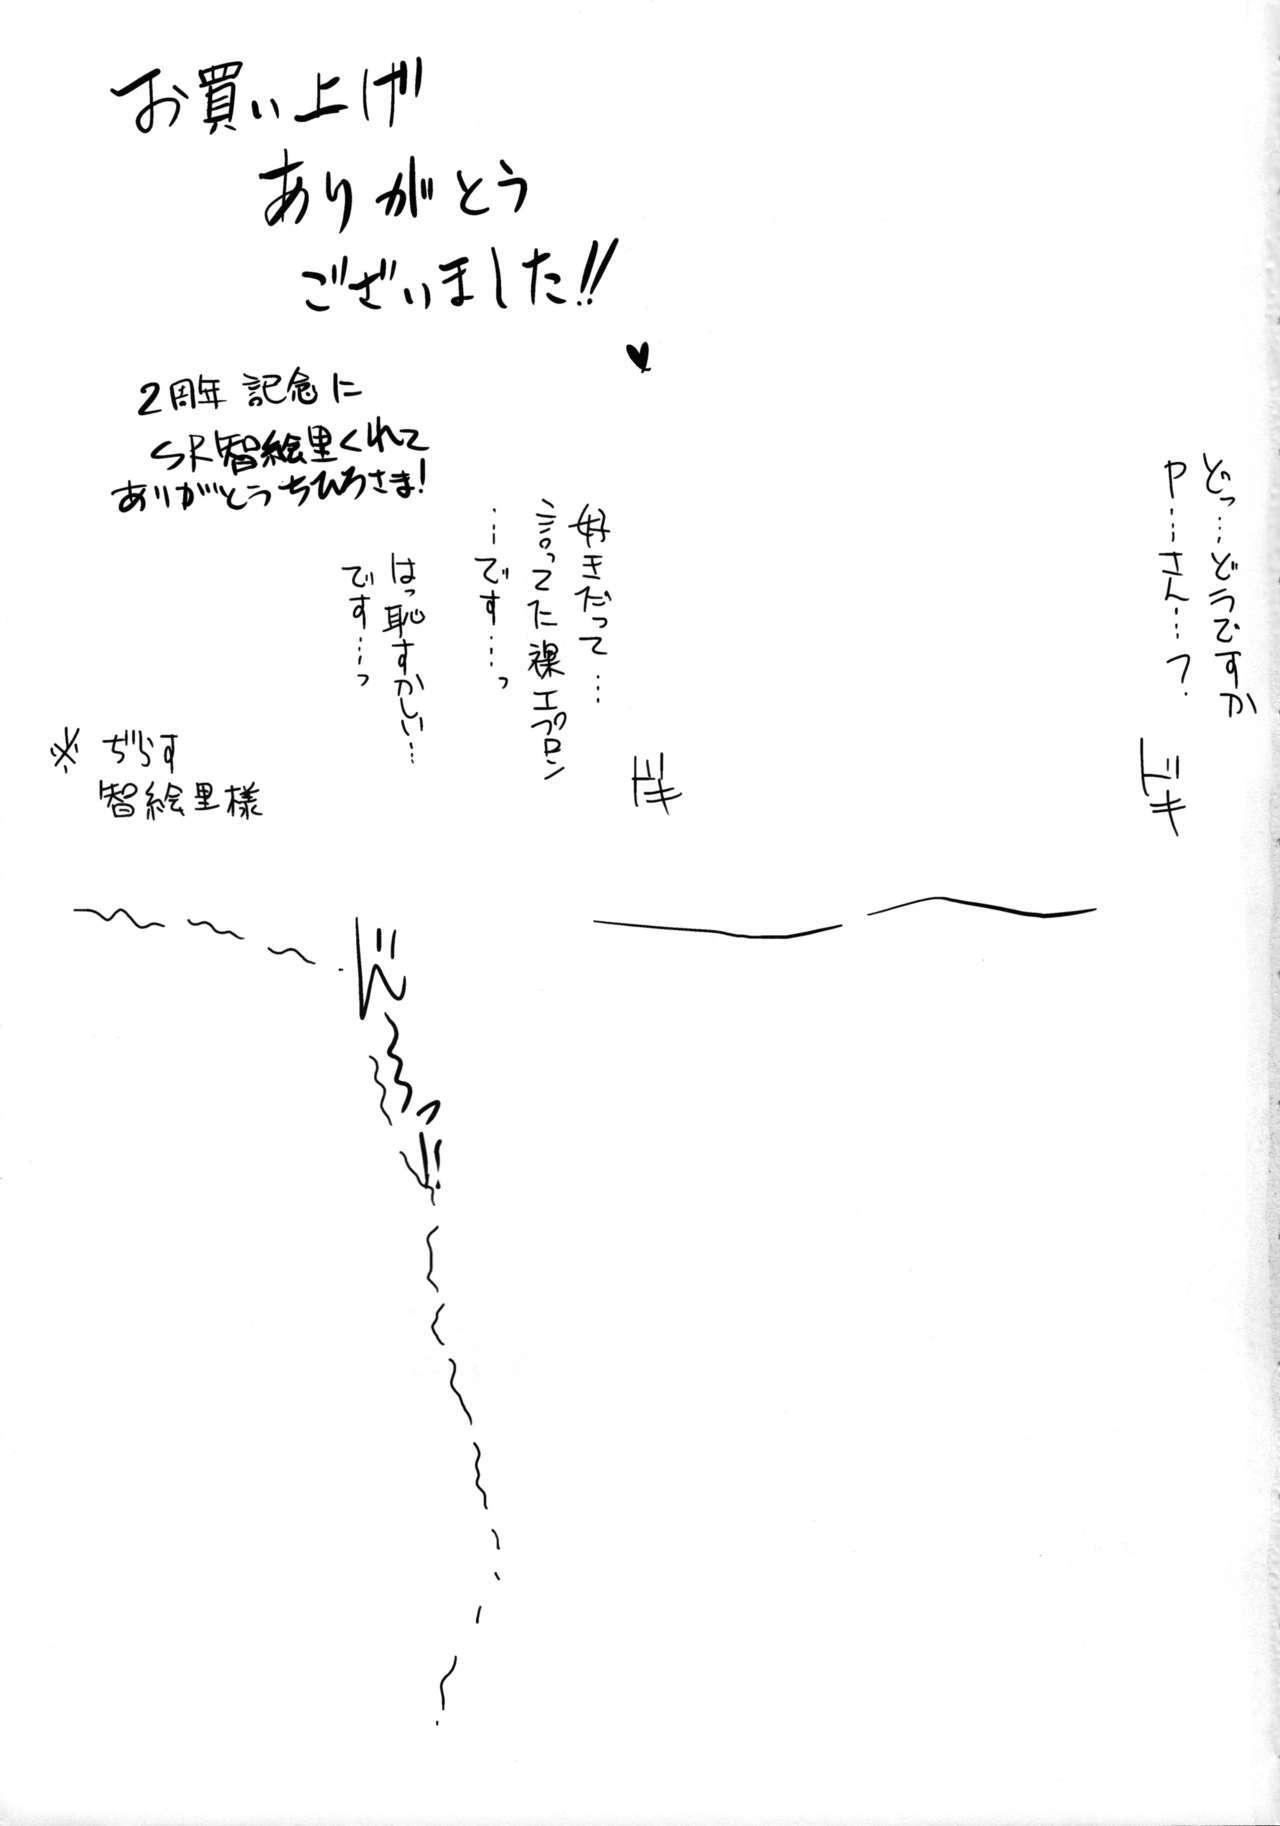 お買い上げ
ありがとう
ございました!!
♥
2周年 記念に
SR智絵里くれて
ありがとうちひろさま!
どっ…どうですか
P……さん……?
好きだって…
言ってた裸エプロン
…です……っ
はっ恥ずかしい…
です……っ
ドキ
ドキ
智絵里様